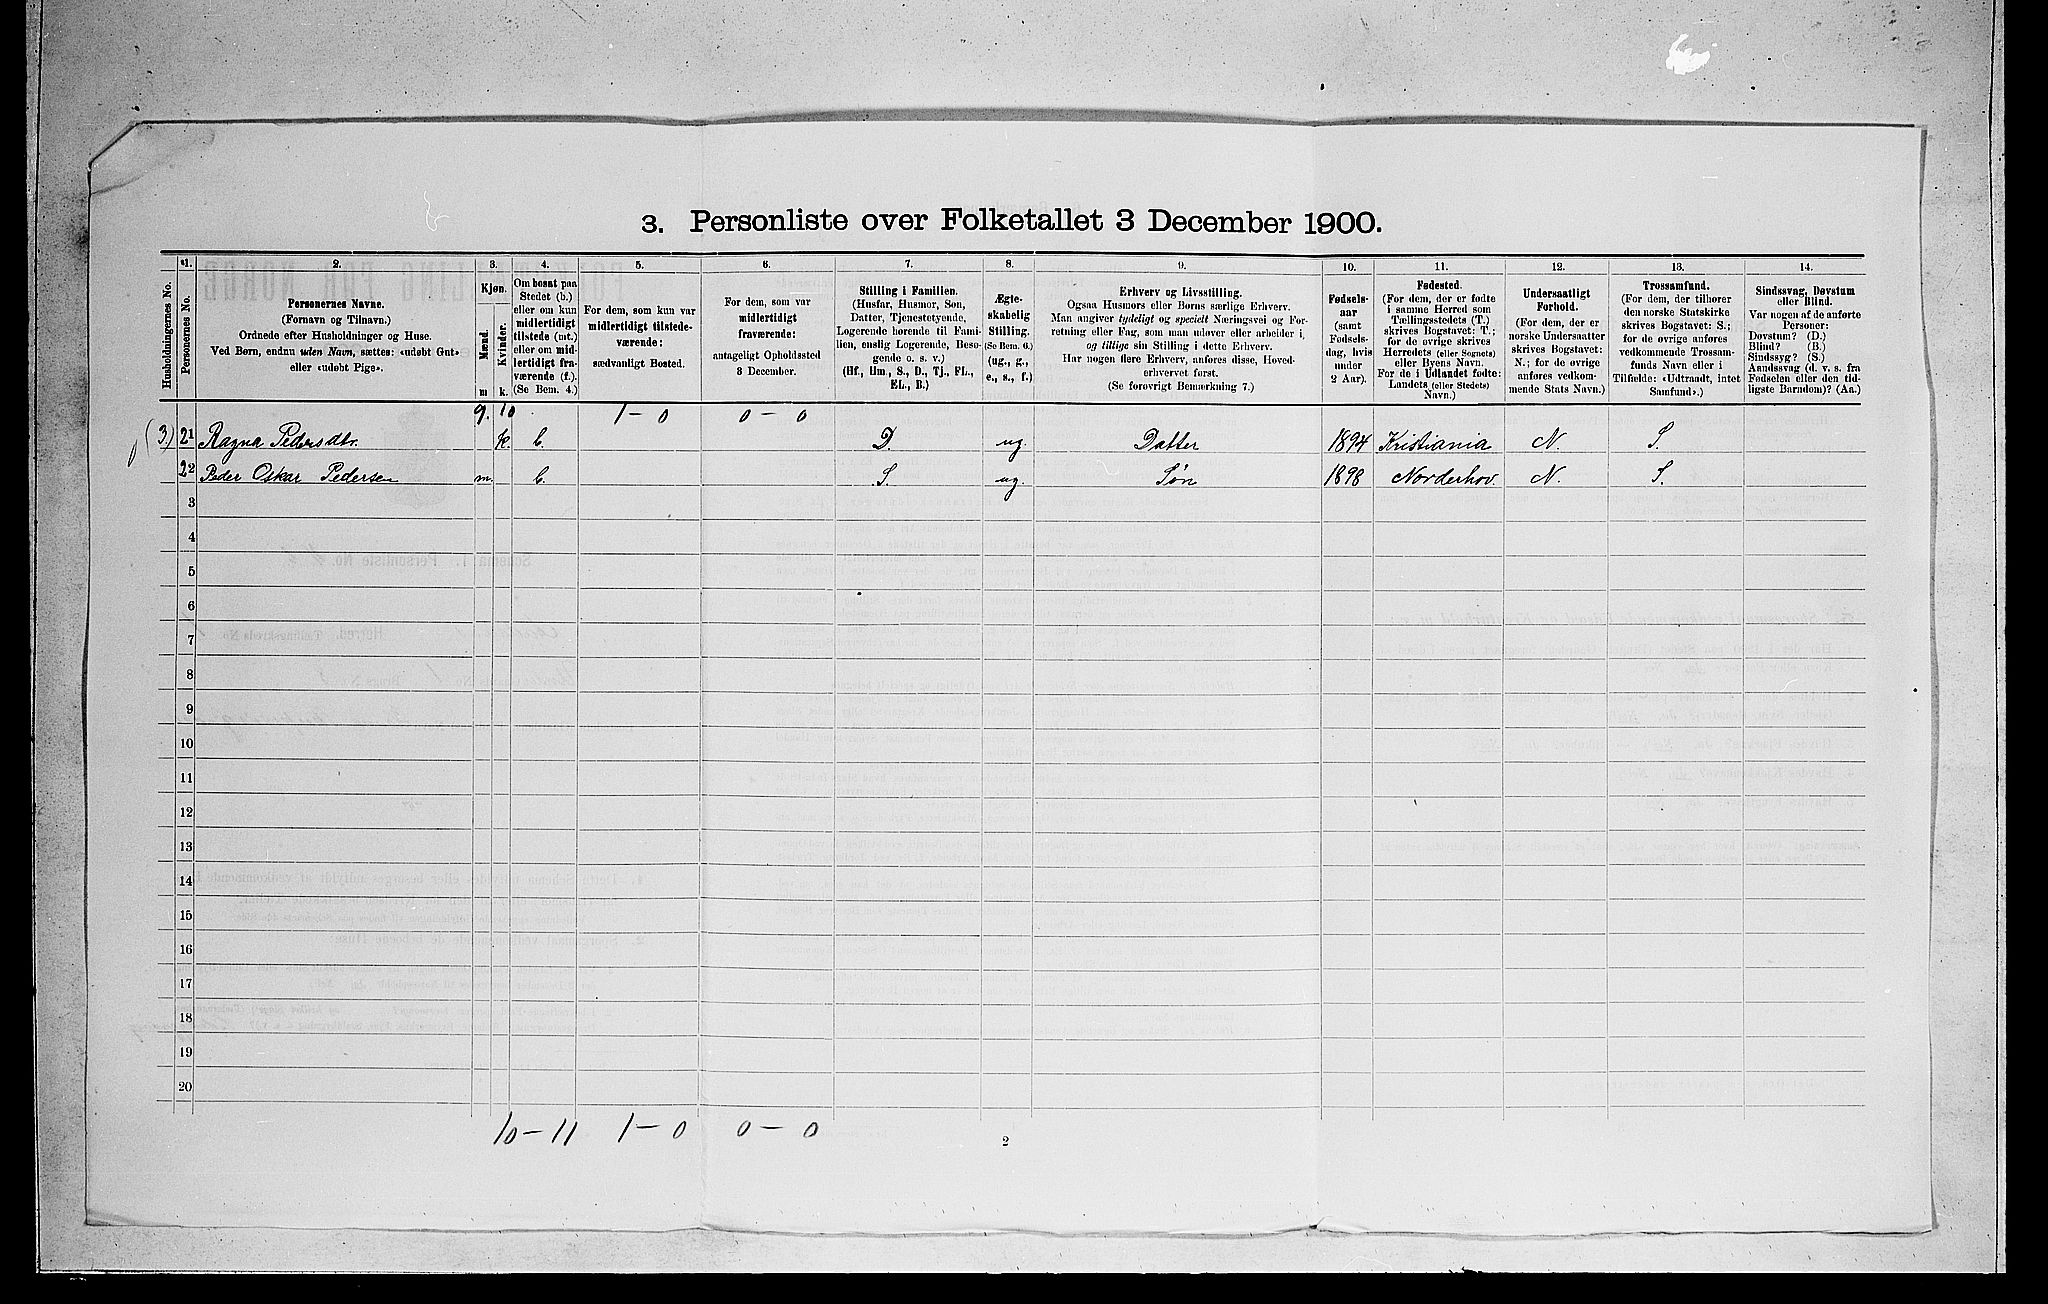 3. Personliste over Folketallet 3 December 1900.
1. 2. 3. 4. 5. 6. 7. 8. 9. 10. 11. 12. 13. 14.
Husholdningernes No.
Personernes No.
Personernes Navne.
(Fornavn og Tilnavn.)
Ordnede efter Husholdninger og Huse.
Ved Børn, endnu uden Navn, sættes: «udøbt Gut»
eller «udøbt Pige».
Kjøn.
Mænd.
Kvinder.
m k.
Om bosat paa
Stedet (b.)
eller om kun
midlertidigt
tilstede (mt.)
eller om mid-
lertidigt fra-
værende (f.).
(Se Bem. 4.)
For dem, som kun var
midlertidigt tilstede-
værende:
sædvanligt Bosted.
For dem, som var
midlertidigt
fraværende:
antageligt Opholdssted
3 December.
Stilling i Familien.
(Husfar, Husmor, Søn,
Datter, Tjenestetyende,
Logerende hørende til Fami-
lien, enslig Logerende, Besø-
gende o. s. v.)
(Hf., Hm., S., D., Tj., FL.,
EL., B.)
Ægte-
skabelig
Stilling.
(Se Bem. 6.)
(ug., g.,
e., s., f.)
Erhverv og Livsstilling.
Ogsaa Husmors eller Børns særlige Erhverv.
Man angiver tydeligt og specielt Næringsvei og For-
retning eller Fag, som man udøver eller arbeider i,
og tillige sin Stilling i dette Erhverv.
Har nogen flere Erhverv, anføres disse, Hoved-
erhvervet først.
(Se forøvrigt Bemerkning 7.)
Fødsels-
aar
(samt
Fødsels-
dag, hvis
under
2 Aar).
Fødested.
(For dem, der er fødte
i samme Herred som
Tællingsstedets (T.)
skrives Bogstavet: T.;
for de øvrige skrives
Herredets (eller Sognets)
eller Byens Navn.
For de i Udlandet fødte:
Landets (eller Stedets)
Navn.)
Undersaatligt
Forhold.
(For dem, der er
norske Undersaatter
skrives Bogstavet:
N.; for de øvrige
anføres vedkom-
mende Stats Navn.)
Trossamfund.
(For dem, der tilhører
den norske Statskirke
skrives Bogstavet: S.;
for de øvrige anføres
vedkommende Trossam-
funds Navn eller i
Tilfælde: «Udtraadt, intet
Samfund».)
Sindssvag, Døvstum
eller Blind.
Var nogen af de anførte
Personer:
Døvstum? (D.)
Blind? (B.)
Sindssyg? (S.)
Aandssvag (d. v. s. fra
Fødselen eller den tid-
ligste Barndom)? (Aa.)
9. 10 1 – 0 0 – 0
(3.) 21 Ragna Pedersdtr. k. b. D. ug. Datter 1894 Kristiania N. S.
22 Peder Oskar Pedersen m. b. S. ug. Søn 1898 Norderhov. N. S.
3
4
5
6
7
8
9
10
11
12
13
14
15
16
17
18
19
20
10 – 11 1 – 0 0 – 0
2